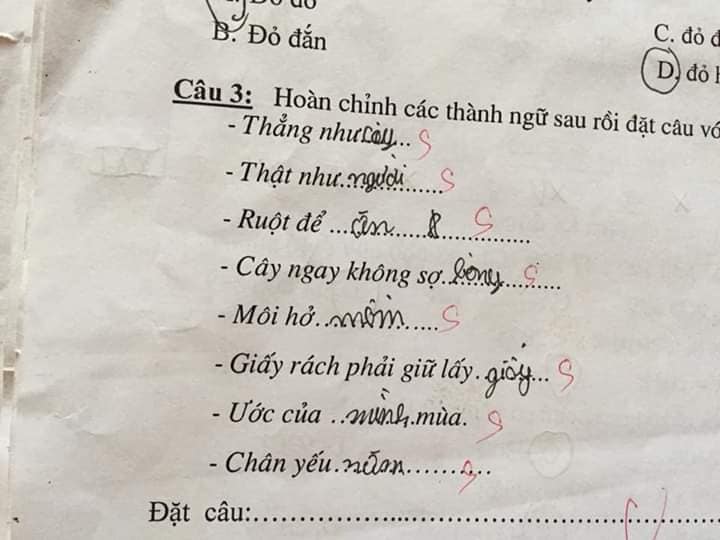 B. Đỏ đắn
C. đỏ
D. đỏ
Câu 3: Hoàn chỉnh các thành ngữ sau rồi đặt câu
- Thẳng như cây... S
- Thật như..người...... S
- Ruột để ...ăn............... S
- Cây ngay không sợ.............. S
- Môi hở..mồm..... S
- Giấy rách phải giữ lấy.giấy... S
- Ước của ..mình.mùa. S
- Chân yếu.nắm.......... S
Đặt câu:...................................................